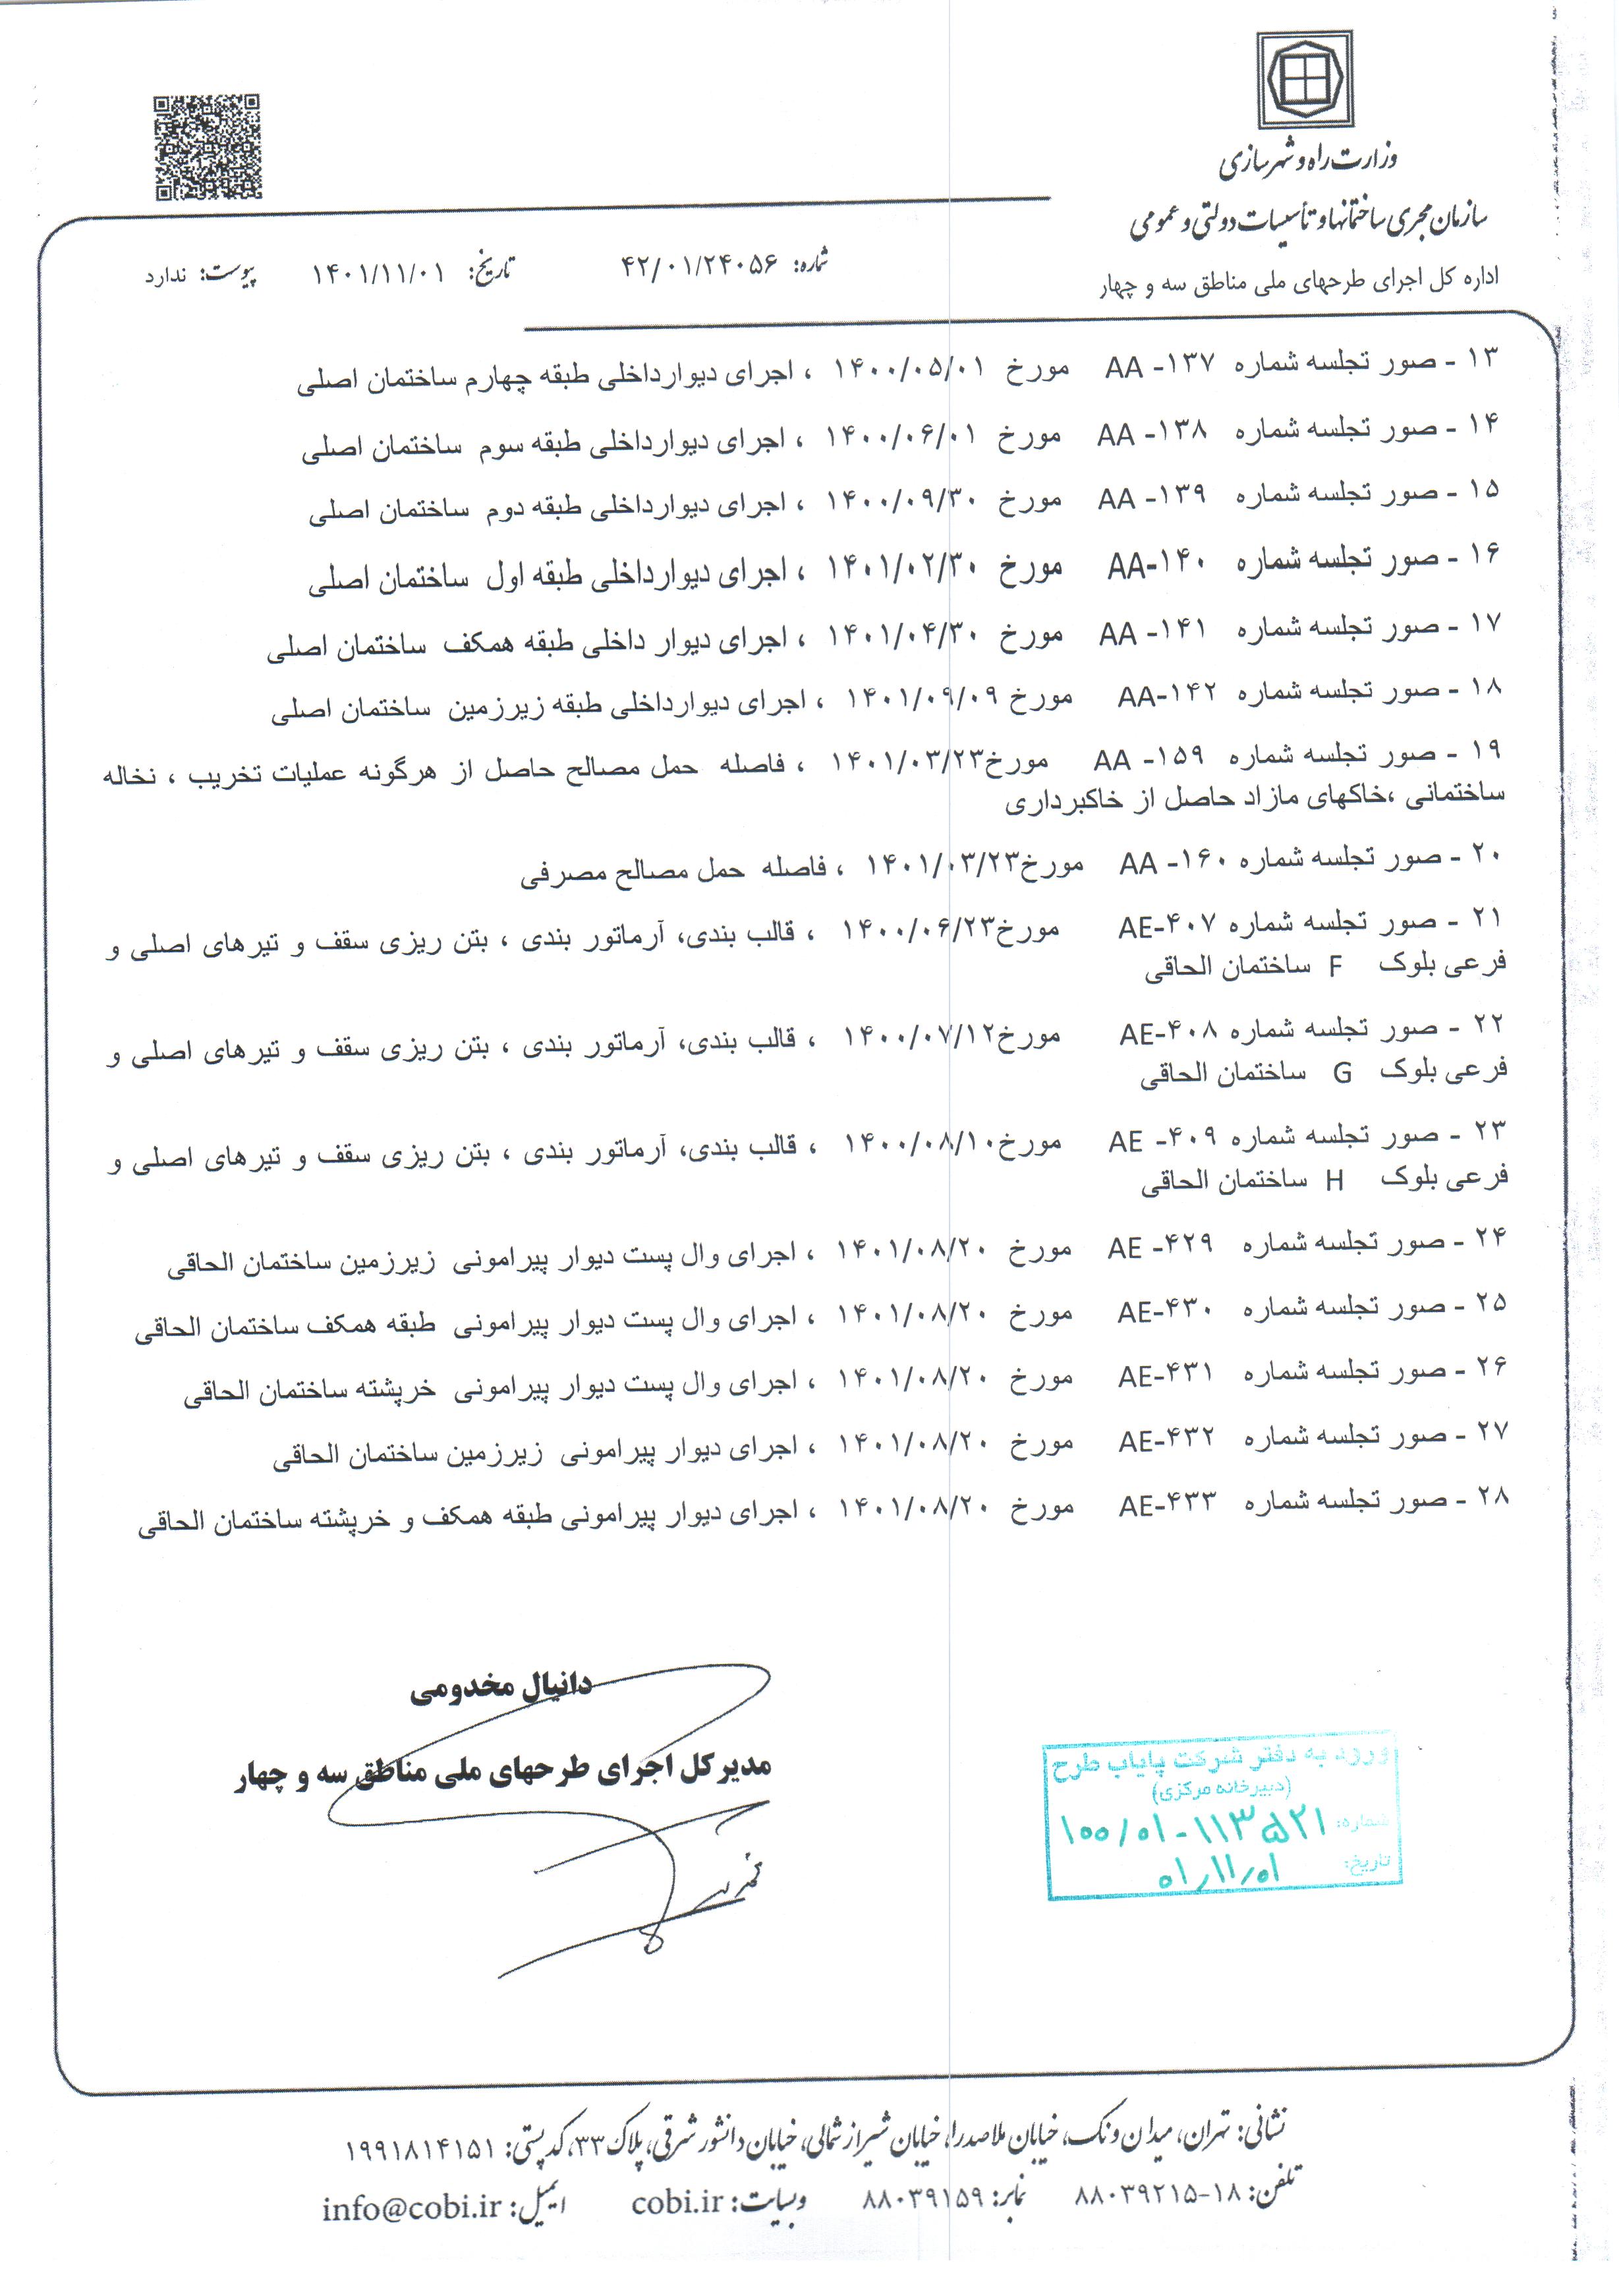 وزارت راه و شهرسازی
سازمان مجری ساختمانها و تأسیسات دولتی و عمومی
اداره کل اجرای طرحهای ملی مناطق سه و چهار
شماره: ۴۲/۰۱/۲۴۰۵۶ تاریخ: ۱۴۰۱/۱۱/۰۱ پیوست: ندارد
۱۳ - صور تجلسه شماره AA -۱۳۷ مورخ ۱۴۰۰/۰۵/۰۱ ، اجرای دیوارداخلی طبقه چهارم ساختمان اصلی
۱۴ - صور تجلسه شماره AA -۱۳۸ مورخ ۱۴۰۰/۰۶/۰۱ ، اجرای دیوارداخلی طبقه سوم ساختمان اصلی
۱۵ - صور تجلسه شماره AA -۱۳۹ مورخ ۱۴۰۰/۰۹/۳۰ ، اجرای دیوارداخلی طبقه دوم ساختمان اصلی
۱۶ - صور تجلسه شماره AA-۱۴۰ مورخ ۱۴۰۱/۰۲/۳۰ ، اجرای دیوارداخلی طبقه اول ساختمان اصلی
۱۷ - صور تجلسه شماره AA -۱۴۱ مورخ ۱۴۰۱/۰۴/۳۰ ، اجرای دیوار داخلی طبقه همکف ساختمان اصلی
۱۸ - صور تجلسه شماره AA-۱۴۲ مورخ ۱۴۰۱/۰۹/۰۹ ، اجرای دیوارداخلی طبقه زیرزمین ساختمان اصلی
۱۹ - صور تجلسه شماره AA -۱۵۹ مورخ۱۴۰۱/۰۳/۲۳ ، فاصله حمل مصالح حاصل از هرگونه عملیات تخریب ، نخاله
ساختمانی ،خاکهای مازاد حاصل از خاکبرداری
۲۰ - صور تجلسه شماره AA -۱۶۰ مورخ۱۴۰۱/۰۳/۲۳ ، فاصله حمل مصالح مصرفی
۲۱ - صور تجلسه شماره AE-۴۰۷ مورخ۱۴۰۰/۰۶/۲۳ ، قالب بندی، آرماتور بندی ، بتن ریزی سقف و تیرهای اصلی و
فرعی بلوک F ساختمان الحاقی
۲۲ - صور تجلسه شماره AE-۴۰۸ مورخ۱۴۰۰/۰۷/۱۲ ، قالب بندی، آرماتور بندی ، بتن ریزی سقف و تیرهای اصلی و
فرعی بلوک G ساختمان الحاقی
۲۳ - صور تجلسه شماره AE -۴۰۹ مورخ۱۴۰۰/۰۸/۱۰ ، قالب بندی، آرماتور بندی ، بتن ریزی سقف و تیرهای اصلی و
فرعی بلوک H ساختمان الحاقی
۲۴ - صور تجلسه شماره AE -۴۲۹ مورخ ۱۴۰۱/۰۸/۲۰ ، اجرای وال پست دیوار پیرامونی زیرزمین ساختمان الحاقی
۲۵ - صور تجلسه شماره AE-۴۳۰ مورخ ۱۴۰۱/۰۸/۲۰ ، اجرای وال پست دیوار پیرامونی طبقه همکف ساختمان الحاقی
۲۶ - صور تجلسه شماره AE-۴۳۱ مورخ ۱۴۰۱/۰۸/۲۰ ، اجرای وال پست دیوار پیرامونی خرپشته ساختمان الحاقی
۲۷ - صور تجلسه شماره AE-۴۳۲ مورخ ۱۴۰۱/۰۸/۲۰ ، اجرای دیوار پیرامونی زیرزمین ساختمان الحاقی
۲۸ - صور تجلسه شماره AE-۴۳۳ مورخ ۱۴۰۱/۰۸/۲۰ ، اجرای دیوار پیرامونی طبقه همکف و خرپشته ساختمان الحاقی
دانیال مخدومی
مدیرکل اجرای طرحهای ملی مناطق سه و چهار
ورود به دفتر شرکت پایاب طرح
(دبیرخانه مرکزی)
شماره: ۱۰۰/۰۱-۱۱۳۵۲۱
تاریخ: ۰۱/۱۱/۰۱
نشانی: تهران، میدان ونک، خیابان ملاصدرا، خیابان شیراز شمالی، خیابان دانشور شرقی، پلاک ۳۳، کد پستی: ۱۹۹۱۸۱۴۱۵۱
تلفن: ۱۸-۸۸۰۳۹۲۱۵ نمابر: ۸۸۰۳۹۱۵۹ وبسایت: cobi.ir ایمیل: info@cobi.ir